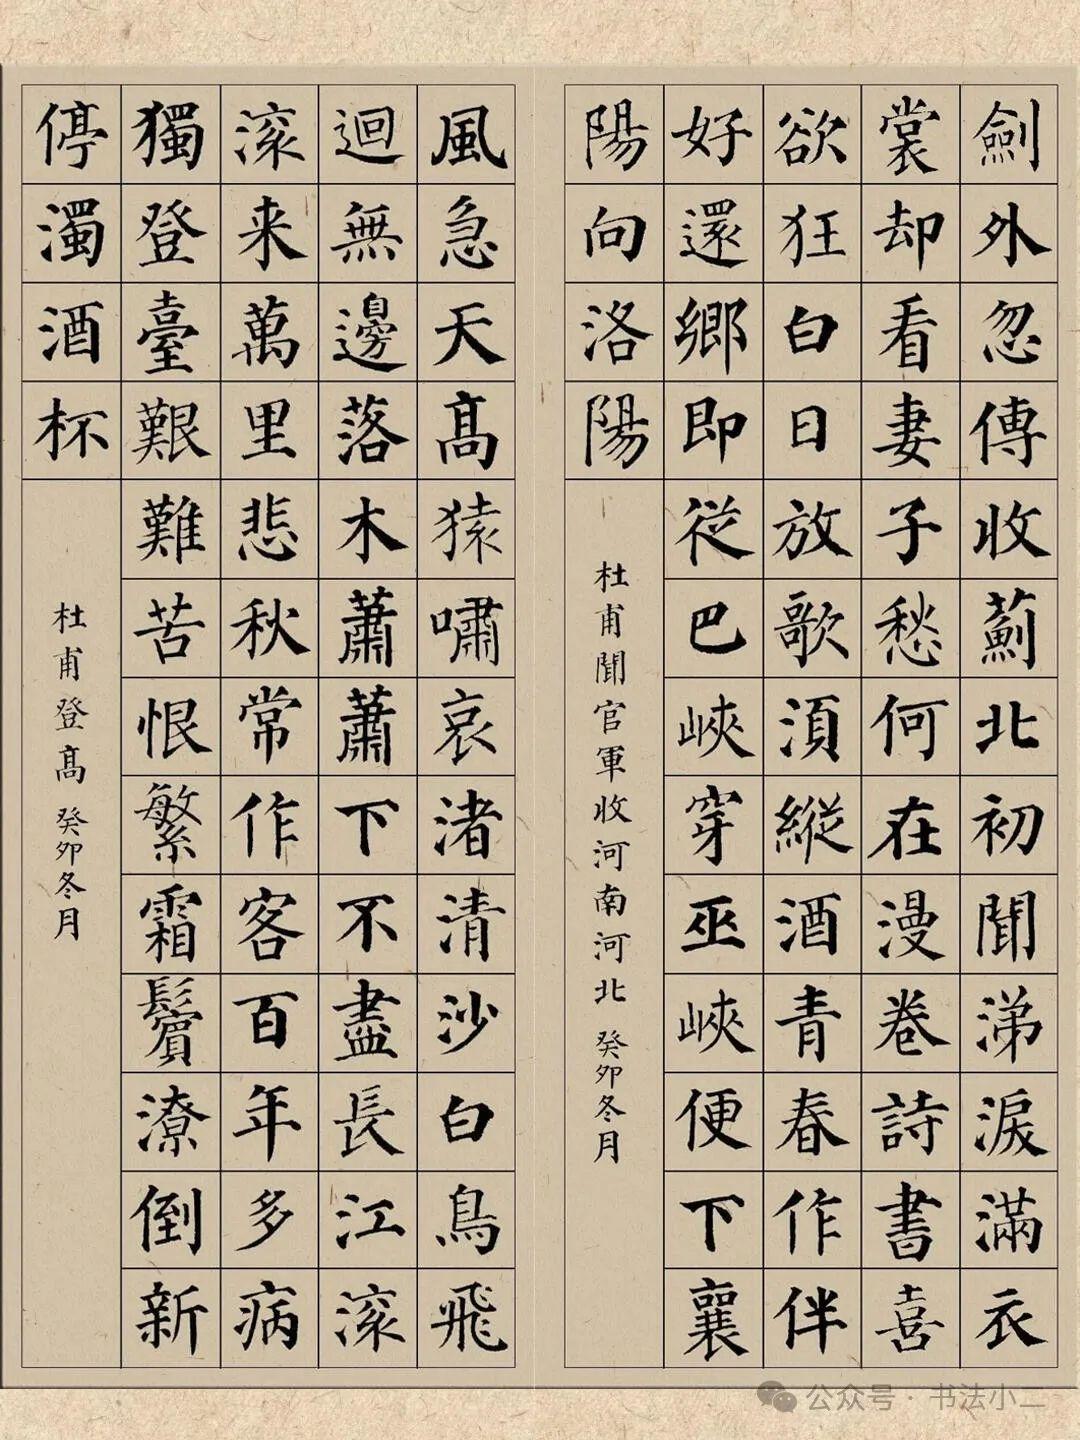 劍外忽傳收薊北初聞涕淚滿衣
裳却看妻子愁何在漫卷詩書喜
欲狂白日放歌須縱酒青春作伴
好還鄉即從巴峽穿巫峽便下襄
陽向洛陽
杜甫聞官軍收河南河北 癸卯冬月
風急天髙猿嘯哀渚清沙白鳥飛
迴無邊落木蕭蕭下不盡長江滾
滾来萬里悲秋常作客百年多病
獨登臺艱難苦恨繁霜鬢潦倒新
停濁酒杯
杜甫登髙 癸卯冬月
公众号 · 书法小二